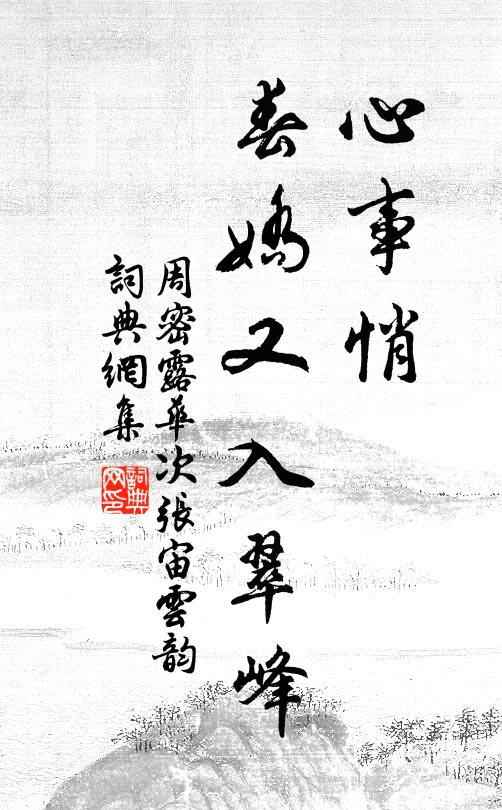 心事悄
春嬌又入翠峰
周密露華次張宙雲韵
詞典網集
詞典网印